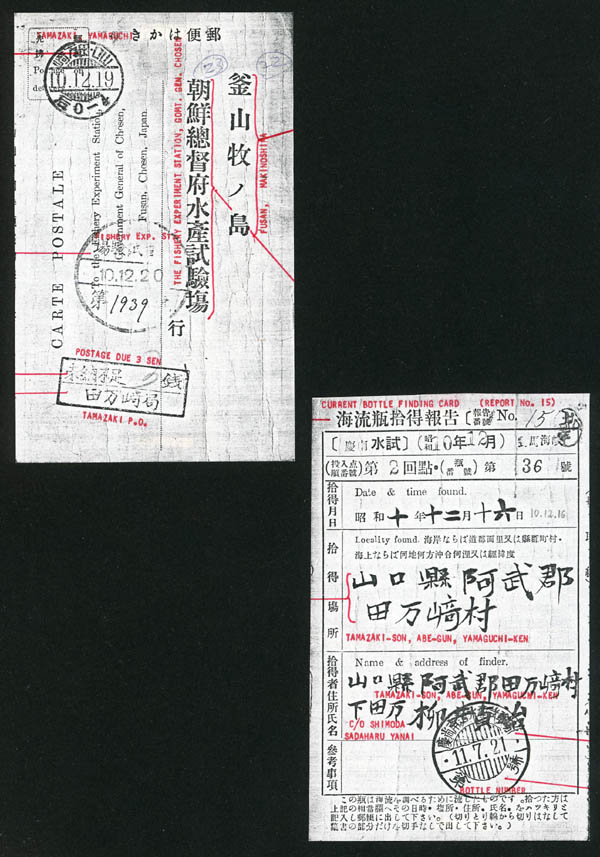 TAMAZAKI YAMAGUCHI
郵便はかき
10.12.19
CARTE POSTALE
To the Fishery Experiment Station,
Government General of Chosen,
Fusan, Chosen, Japan.
釜山牧ノ島
FUSAN, MAKINOSHIMA
朝鮮總督府水産試驗場
行
THE FISHERY EXPERIMENT STATION, GOMT. GEN. CHOSEN
23
22
FISHERY EXP. STA
10.12.20
第1939
POSTAGE DUE 3 SEN
未納不足 銭
田万崎局
TAMAZAKI P.O.
CURRENT BOTTLE FINDING CARD (REPORT No. 15)
海流瓶拾得報告〔報告番號〕No. 15
〔慶南水試〕(昭和10年12月)
(投入点順番號)第2回點・(瓶番號)第 36 號
拾得月日
Date & time found.
昭和十年十二月十六日 10.12.16
拾得場所
Locality found. 海岸ならば道郡面里又は縣郡町村・
海上ならば何地何方沖合何浬又は經緯度
山口縣阿武郡
田万﨑村
TAMAZAKI-SON, ABE-GUN, YAMAGUCHI-KEN
拾得者住所氏名
Name & address of finder.
山口縣阿武郡田万﨑村
TAMAZAKI-SON, ABE-GUN, YAMAGUCHI-KEN
下田万
C/O SHIMODA
SADAHARU YANAI
11.7.21
參考事項
BOTTLE NUMBER
この瓶は海流を調べるために流したものです。拾つた方は
上記の相當欄へその日時・場所・住所・氏名・をハツキリと
記入し郵便に出して下さい。(切りとり線から切りはなして
葉書の部分だけを切手なしで出して下さい。)